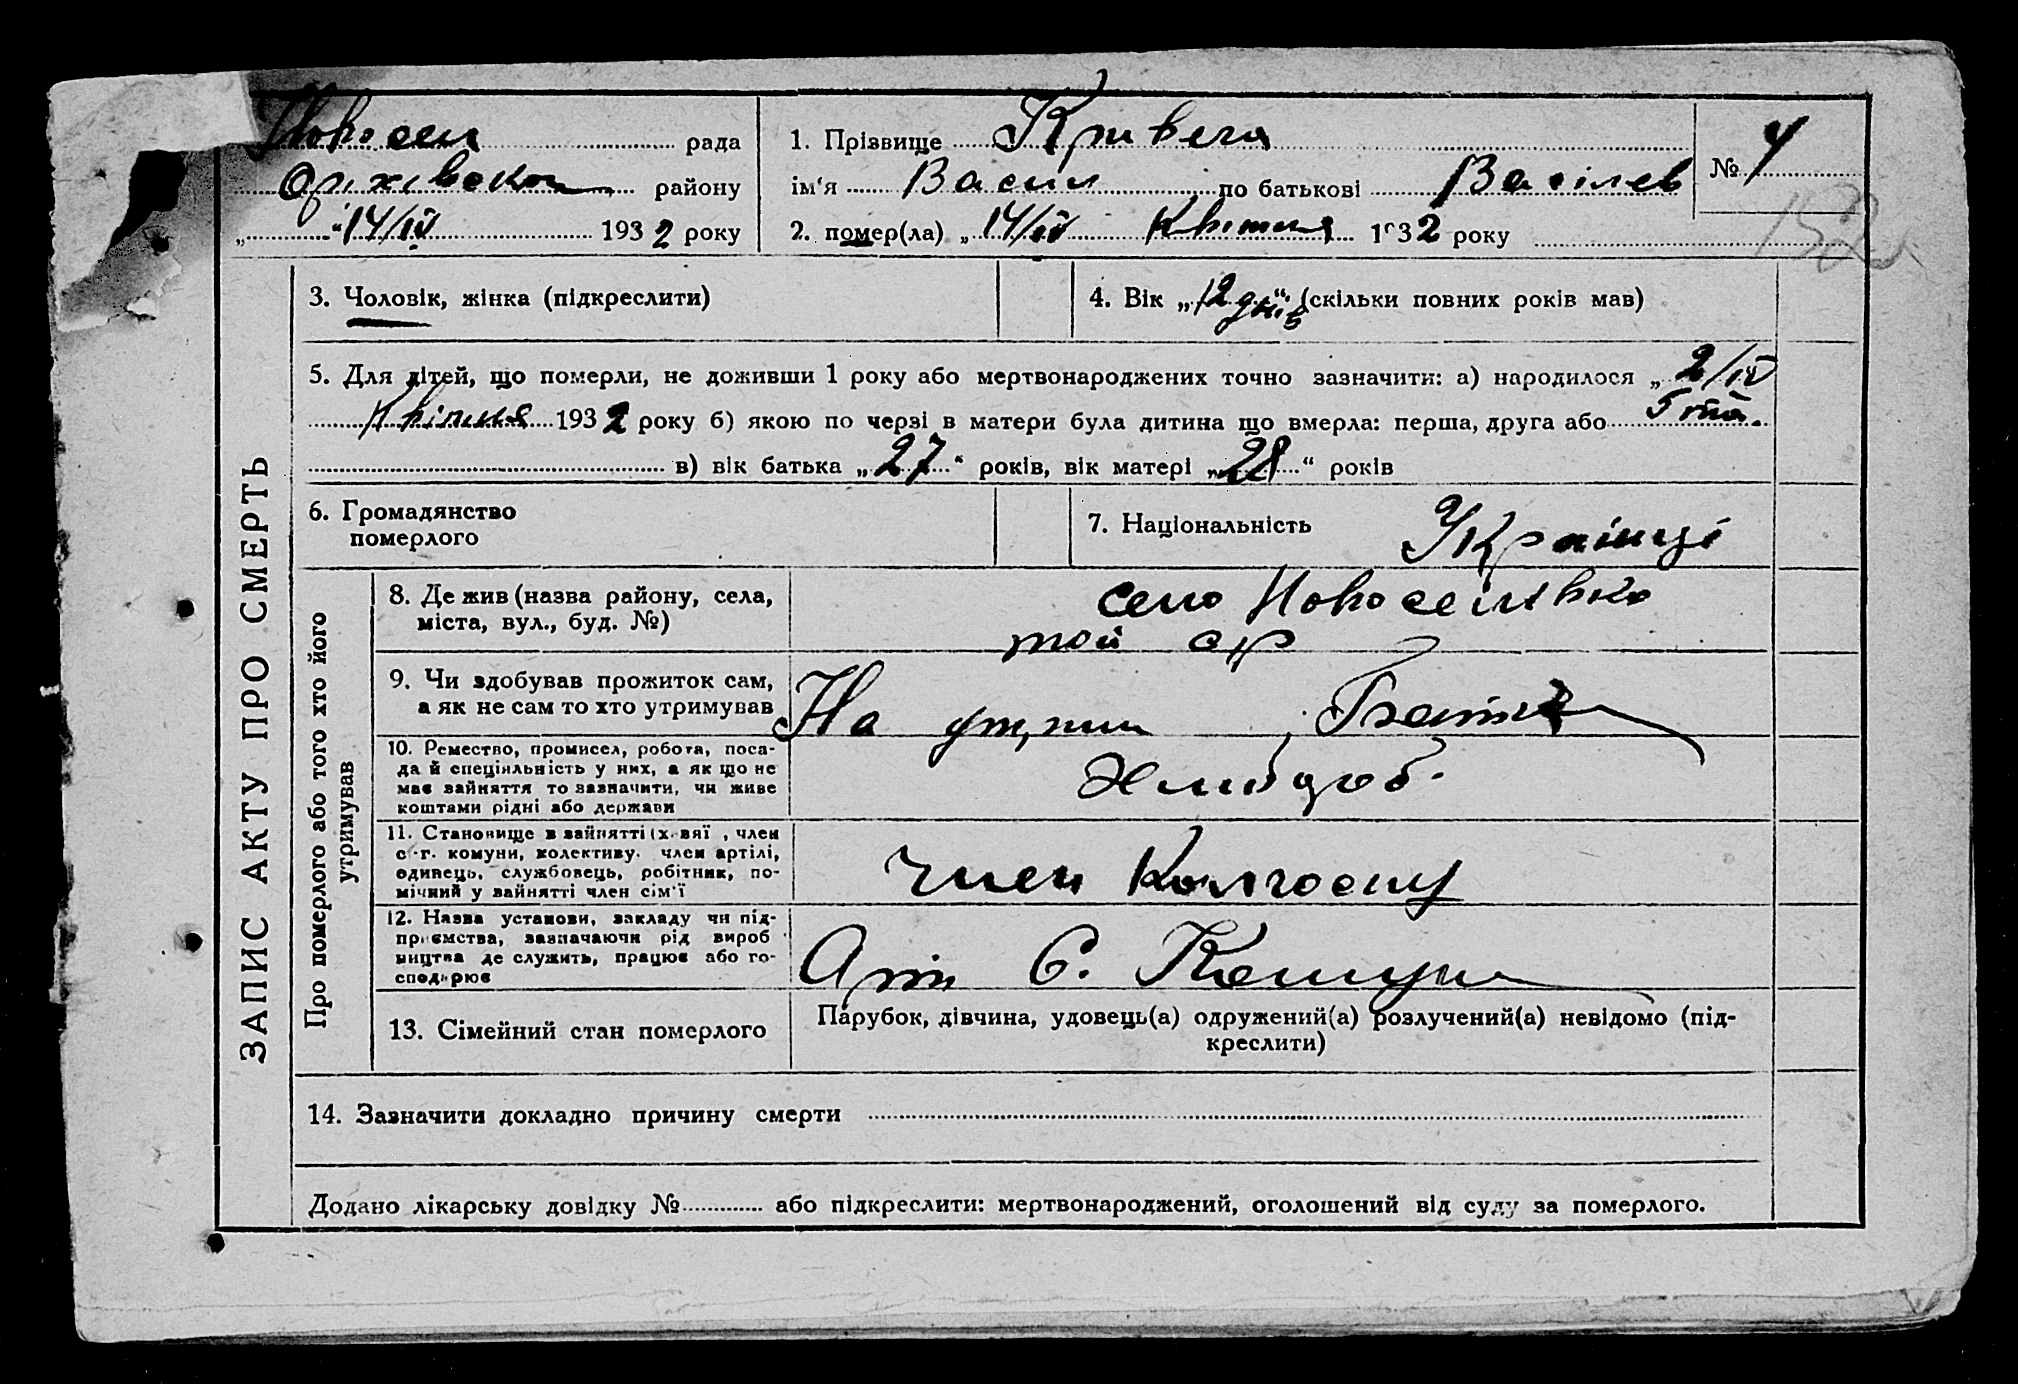 Новосел рада
Оріхівськог району
„ “ 14/IV 1932 року
1. Прізвище Кривега
ім‘я Васил по батькові Васілев
2. помер(ла) „ 14/IV Квітня 1932 року
№ 4
152
3. Чоловік, жінка (підкреслити)
4. Вік „ 12 днів “ (скільки повних років мав)
5. Для дітей, що померли, не доживши 1 року або мертвонароджених точно зазначити: а) народилося „ 2/IV
Квітня 1932 року б) якою по черзі в матери була дитина що вмерла: перша, друга або 5 та.
в) вік батька „27“ років, вік матері „28“ років
6. Громадянство
померлого
7. Національність Українці
ЗАПИС АКТУ ПРО СМЕРТЬ
Про померлого або того хто його
утримував
8. Де жив (назва району, села,
міста, вул., буд. №)
село Новоселівка
той
9. Чи здобував прожиток сам,
а як не сам то хто утримував
На Батька
10. Ремество, промисел, робота, поса-
да й спеціяльність у них, а як що не
має зайняття то зазначити, чи живе
коштами рідні або держави
Хлібороб.
11. Становище в зайнятті (х вяї , член
с.-г. комуни, колективу, член артілі,
одивець, службовець, робітник, по-
мічний у зайнятті член сім‘ї
член Колгоспу
12. Назва установи, закладу чи під-
приємства, зазначаючи рід вироб
ництва де служить, працює або го-
сподарює
Арт С.
13. Сімейний стан померлого
Парубок, дівчина, удовець(а) одружений(а) розлучений(а) невідомо (під-
креслити)
14. Зазначити докладно причину смерти
Додано лікарську довідку № або підкреслити: мертвонароджений, оголошений від суду за померлого.